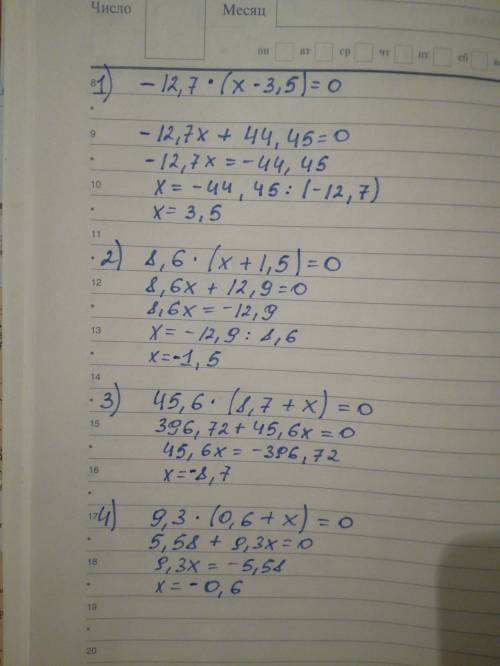 Число
Месяц
пн вт ср чт пт сб
8 1) -12,7 · (x - 3,5) = 0
9 -12,7x + 44,45 = 0
-12,7x = -44,45
10 x = -44,45 : (-12,7)
x = 3,5
11
2) 8,6 · (x + 1,5) = 0
12 8,6x + 12,9 = 0
8,6x = -12,9
13 x = -12,9 : 8,6
x = -1,5
14
3) 45,6 · (8,7 + x) = 0
15 396,72 + 45,6x = 0
45,6x = -396,72
16 x = -8,7
17 4) 9,3 · (0,6 + x) = 0
5,58 + 9,3x = 0
18 9,3x = -5,58
x = -0,6
19
20